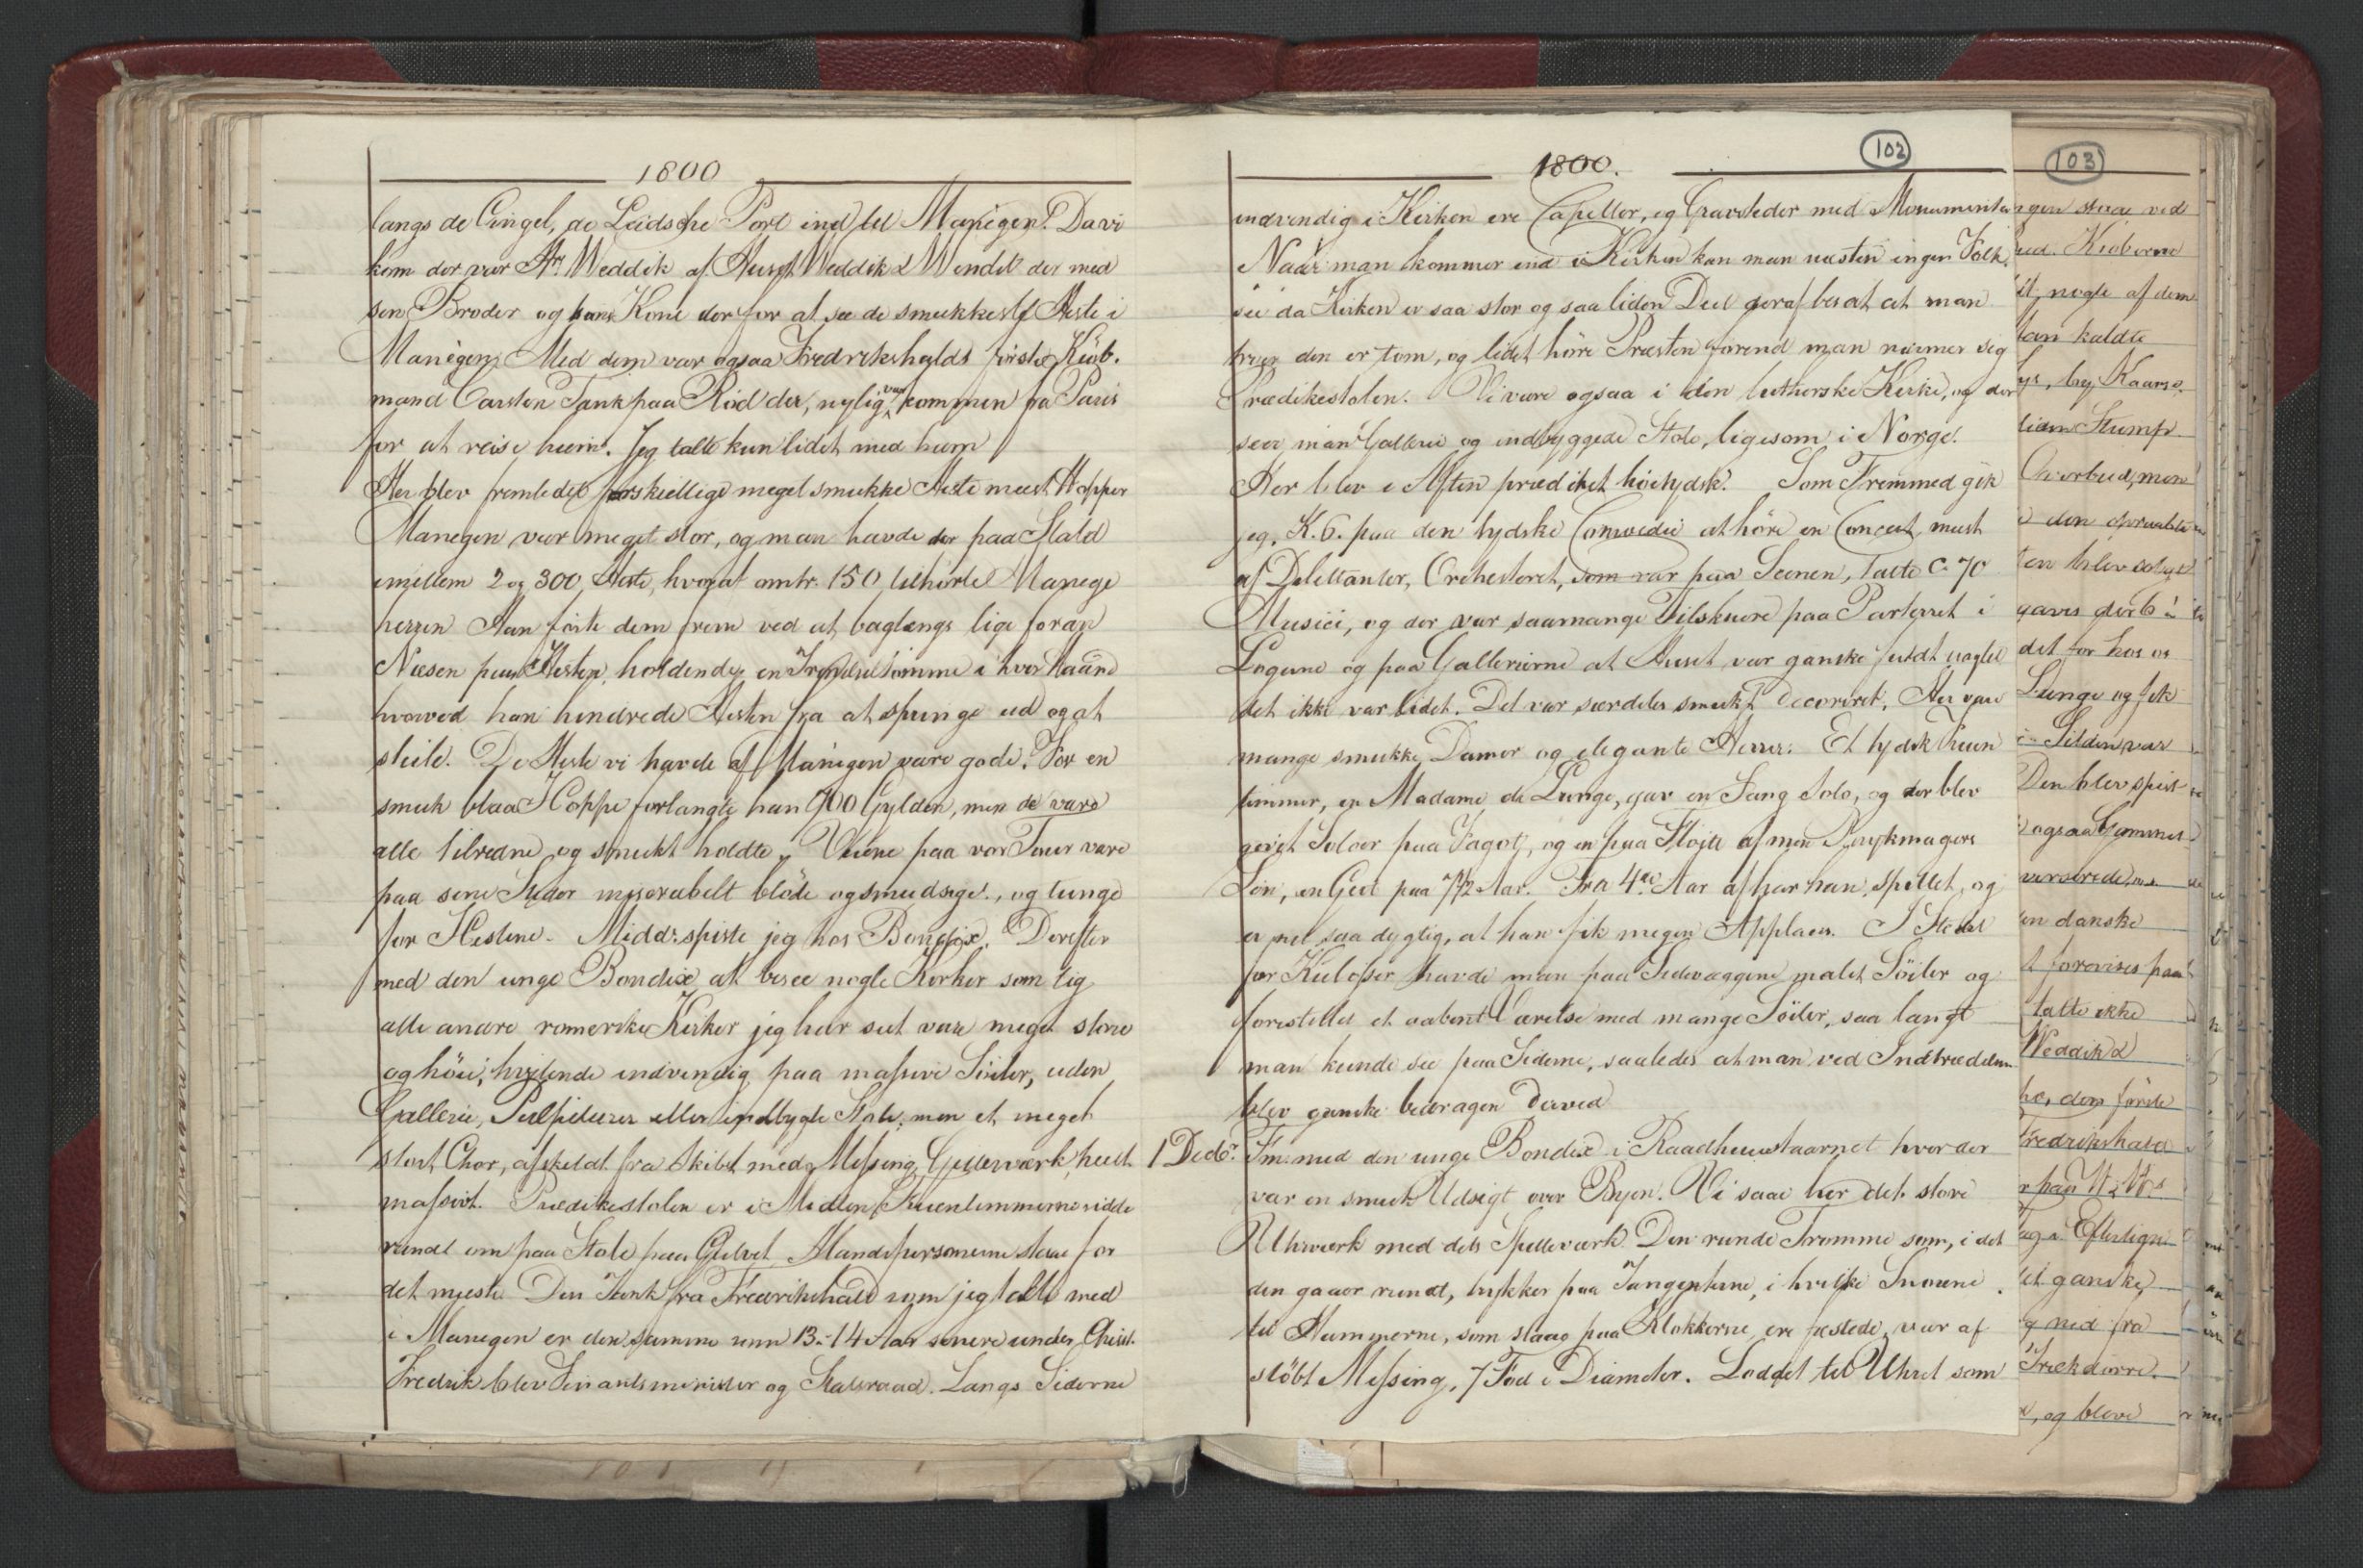 1800
langs de Cingel, de Leidsche Port ind til Manègen. Da vi
kom der var Hr Weddik af Huset Weddik & Wendt der med
sen Broder og hans Kone der for at see de smukkeste Heste i
Manègen. Med dem var ogsaa Fredrikshalds første Kiöb-
mand Carsten Tank paa Röd der, nylig var kommen fra Paris
for at reise hiem. Jeg talte kun lidet med ham
Her blev fremledet forskiellige meget smukke Heste meest Hopper
Manegen var meget stor, og man havde der paa Stald
imellem 2 og 300 Heste, hvoraf omtr. 150 tilhörte Manege
herren Han förte dem frem ved at baglængs lige foran
Næsen paa Hesten, holdende en Trendsetömme i hver Haand
hvorved han hindrede Hesten fra at springe ud og at
steile. De Heste vi havde af Manègen vare gode. For en
smuk blaa Hoppe forlangte han 900 Gylden, men de vare
alle tilredne og smukt holdte. Veiene paa vor Tour vare
paa sine Steder miserabelt blöde og smudsige, og tunge
for Hestene. Midd: spiste jeg hos Bendix. Derefter
med den unge Bendix at besee nogle Kirker som lig
alle andre romerske Kirker jeg har seet vare meget store
og höie, hvilende indvendig paa massive Söiler, uden
Gallerie, Pulpiturer eller indbygte Stole; men et meget
stort Chor, afskildt fra Skibet med Messing Gitterværk heelt
massivt. Prædikestolen er i Midten Fruentimmerne sidde
rundt om paa Stole paa Gulvet Mandspersonerne staae for
det meeste. Den Tank fra Fredrikshald som jeg talte med
i Manegen er den samme som 13-14 Aar senere under Christ.
Fredrik blev Finantsminister og Statsraad. Langs Siderne
1800.
102
indvendig i Kirken ere Capeller, og Gravsteder med Monumenter
Naar man kommer ind i Kirken kan man næsten ingen Folk
see da Kirken er saa stor og saa liden Deel deraf besat at man
troer den er tom, og lidet höre Præsten förend man nærmer sig
Prædikestolen. Vi vare ogsaa i den lutherske Kirke, og der
seer man Gallerie og indbyggede Stole, ligesom i Norge.
Her blev i Aften prædiket höitydsk. Som Fremmed gik
jeg, K. 6. paa den tydske Comoedie at höre en Concert, meest
af Dilettanter, Orchesteret, som var paa Scenen, talte C. 70
Musici, og der var saamange Tilskuere paa Parterret i
Logerne og paa Gallerierne at Huset var ganske fuldt uagtet
det ikke var lidet. Det var særdeles smukt decoreret. Her vare
mange smukke Damer og elegante Herrer. Et tydsk Fruen
timmer, en Madame de Lange, gav en Sang Solo, og der blev
givet Soloer paa Fagot, og en paa Flöjte af min Parykmagers
Sön, en Gut paa 7 1/2 Aar. Fra 4de Aar af har han spillet, og
er nu saa dygtig, at han fik megen Applaus. I Stedet
for Kulisser havde man paa Sidevæggene malet Söiler og
forestillet et aabent Værelse med mange Söiler, saa langt
man kunde see paa Siderne, saaledes at man ved Indtrædelsen
blev ganske bedragen derved
1 Decbr. Fm. med den unge Bendix i Raadhuustaarnet hvor der
var en smuk Udsigt over Byen. Vi saae her det store
Uhrværk med dets Spilleværk. Den runde Tromme som, i det
den gaaer rundt, trykker paa Tangenterne, i hvilke Snorene
til Hammerne, som slaae paa Klokkerne ere fæstede, var af
stöbt Messing, 7 Fod i Diameter. Loddet til Uhret som
103
gen staae ved
ud. Kioberne
it, nogle af dem
tan kaldte
Stump
Overbud, men
i den opraabte
ten blev solgt
det for hos os
Lunge og fik
Silden, var
Den blev spist
ogsaa Gammel
en danske
t forevises paa
talte ikke
Weddik &
he, den förste
Fredrikshald
Efterligne
et ganske
g ned fra
Trækdörre.
, og bleve